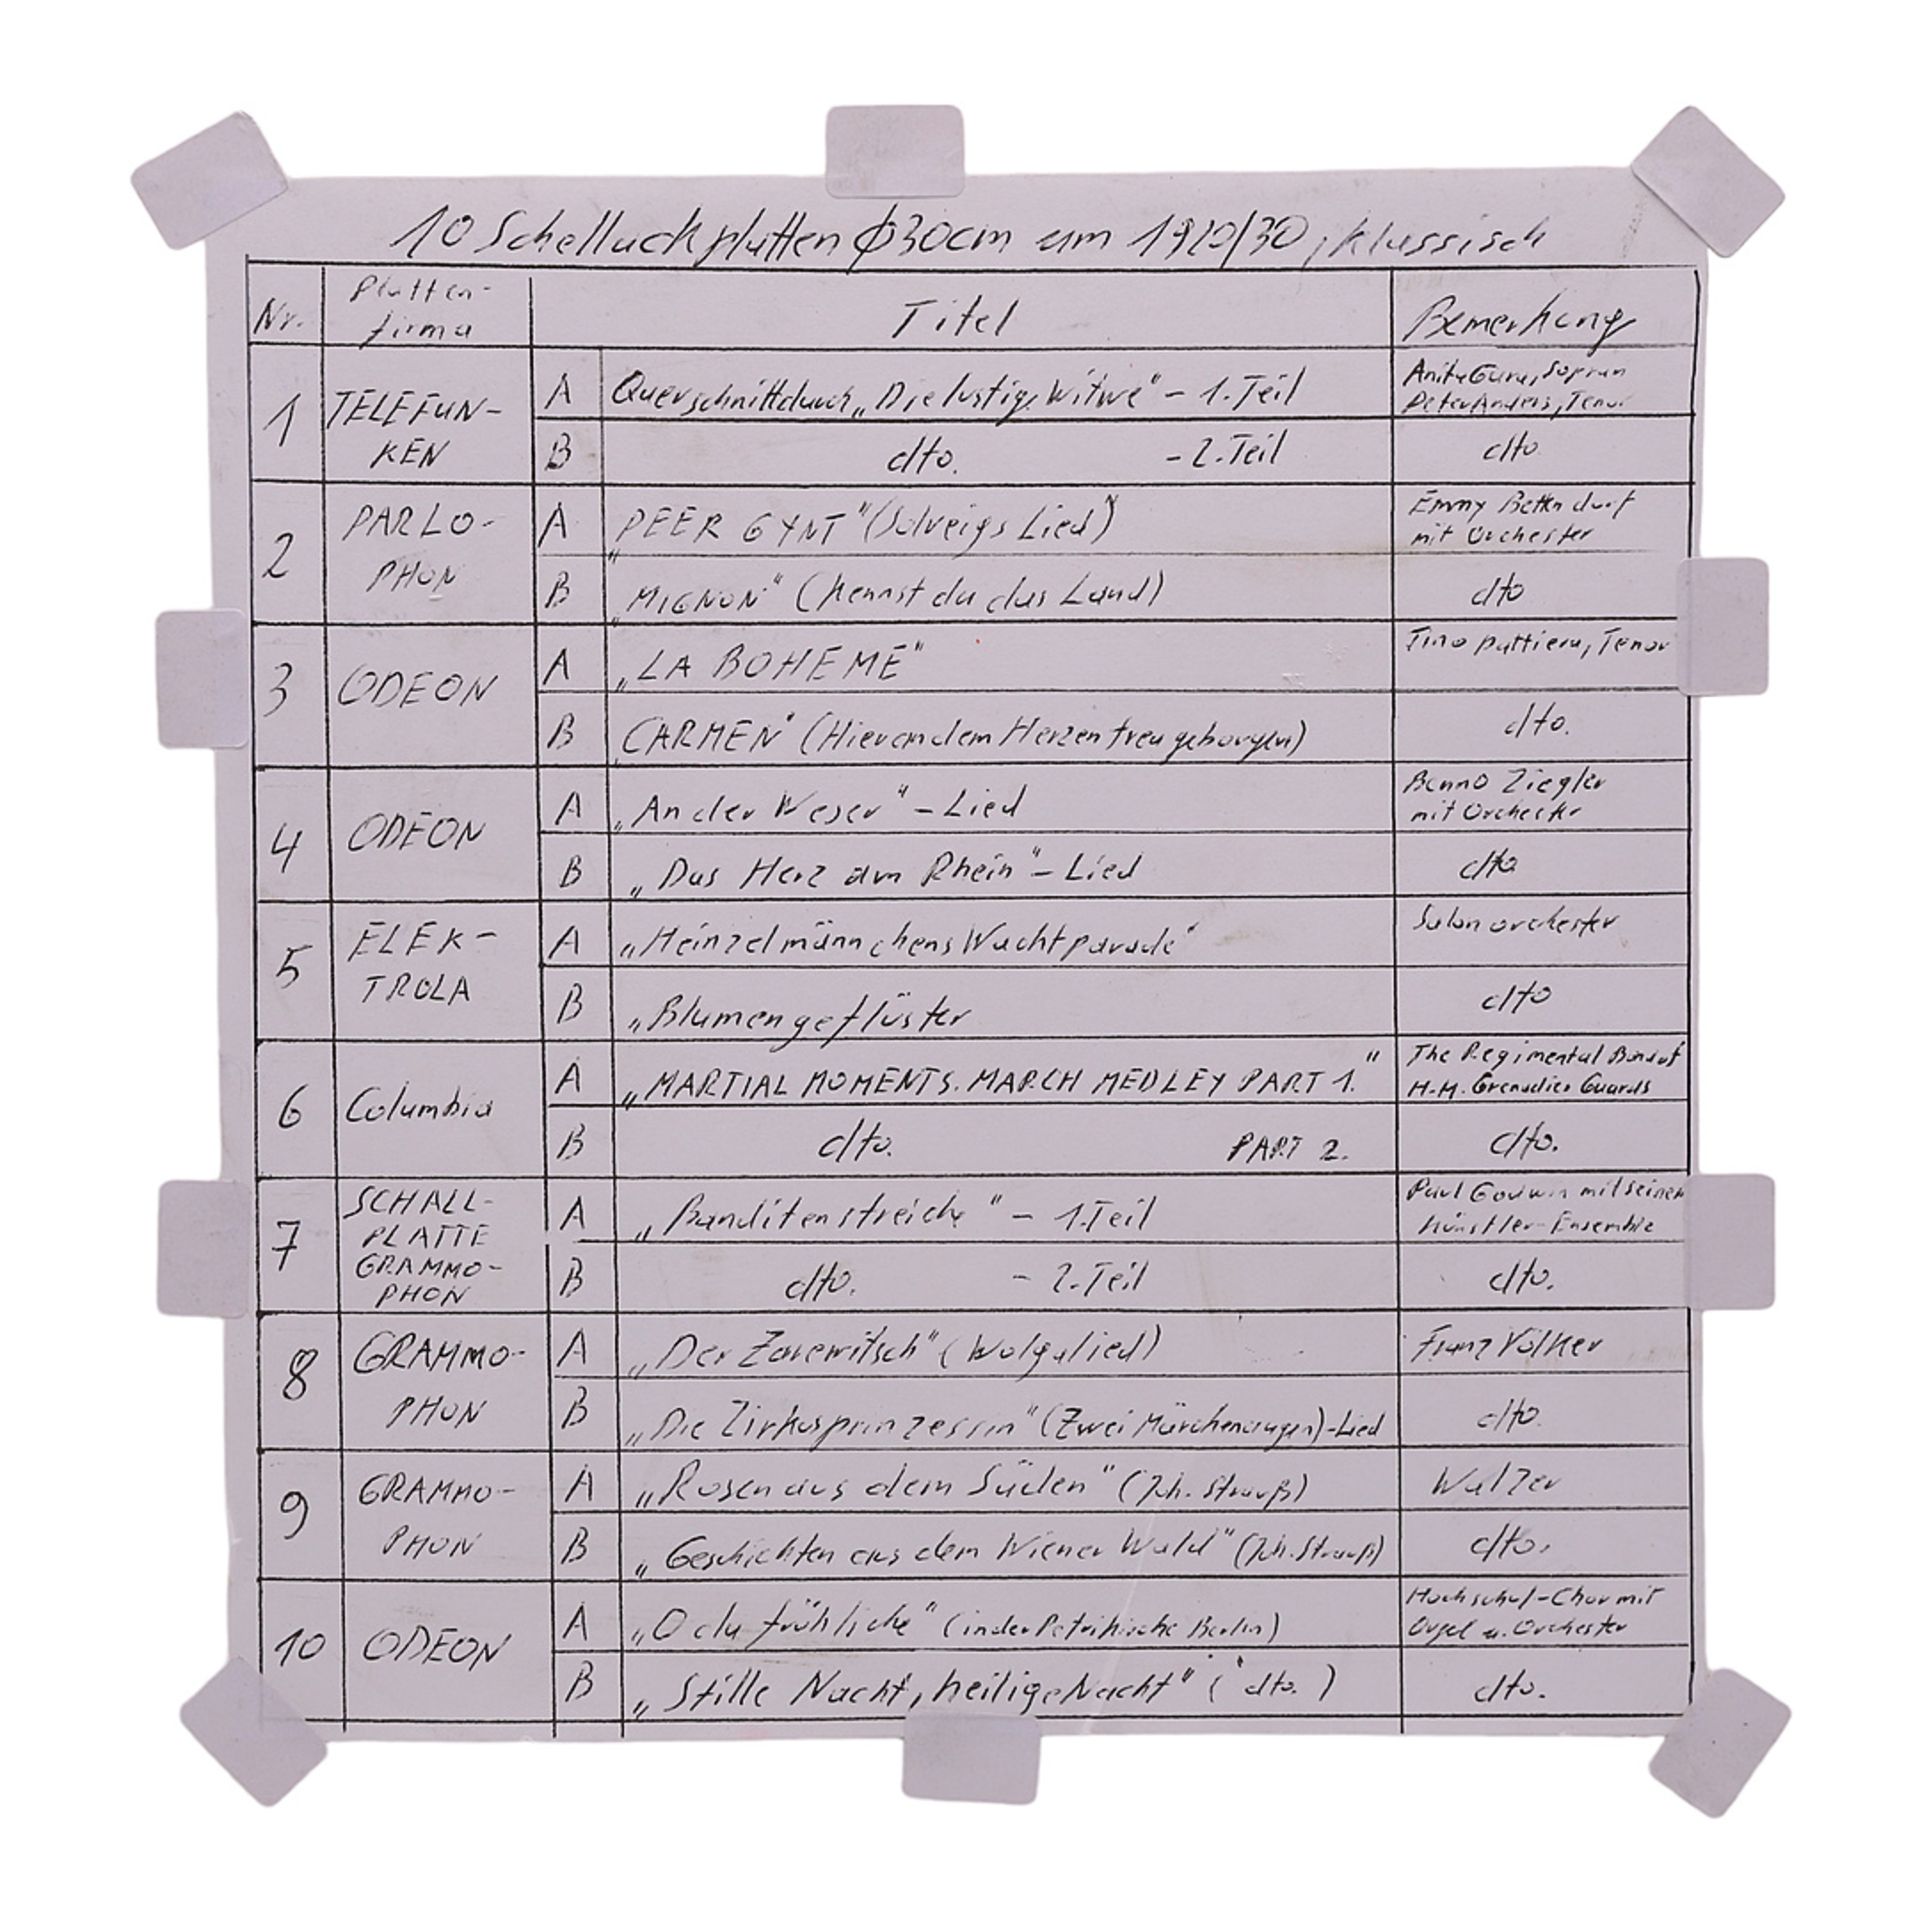 10 Schellackplatten ϕ30cm um 1920/30, klassisch
Nr. Platten- firma Titel Bemerkung
1 TELEFUN- KEN A Querschnitt durch „Die lustige Witwe" - 1. Teil Anita Gura, Sopran Peter Anders, Tenor
B dto. - 2. Teil dto
2 PARLO- PHON A „PEER GYNT" (Solveigs Lied) Emmy Bettendorf mit Orchester
B „MIGNON" (Kennst du das Land) dto
3 ODEON A „LA BOHEME" Tino Pattiera, Tenor
B „CARMEN" (Hier an dem Herzen treu geborgen) dto.
4 ODEON A „An der Weser" - Lied Benno Ziegler mit Orchester
B „Das Herz am Rhein" - Lied dto
5 ELEK- TROLA A „Heinzelmännchens Wachtparade" Salonorchester
B „Blumengeflüster dto
6 Columbia A „MARTIAL MOMENTS. MARCH MEDLEY PART 1." The Regimental Band of H.M. Grenadier Guards
B dto. PART 2. dto.
7 SCHALL- PLATTE GRAMMO- PHON A „Banditenstreiche" - 1. Teil Paul Godwin mit seinem Künstler-Ensemble
B dto. - 2. Teil dto.
8 GRAMMO- PHON A „Der Zarewitsch" (Wolgalied) Franz Völker
B „Die Zirkusprinzessin" (Zwei Märchenaugen)-Lied dto.
9 GRAMMO- PHON A „Rosen aus dem Süden" (Joh. Strauß) Walzer
B „Geschichten aus dem Wiener Wald" (Joh. Strauß) dto.
10 ODEON A „O du fröhliche" (in der Petrikirche Berlin) Hochschul-Chor mit Orgel u. Orchester
B „Stille Nacht, heilige Nacht" (dto.) dto.